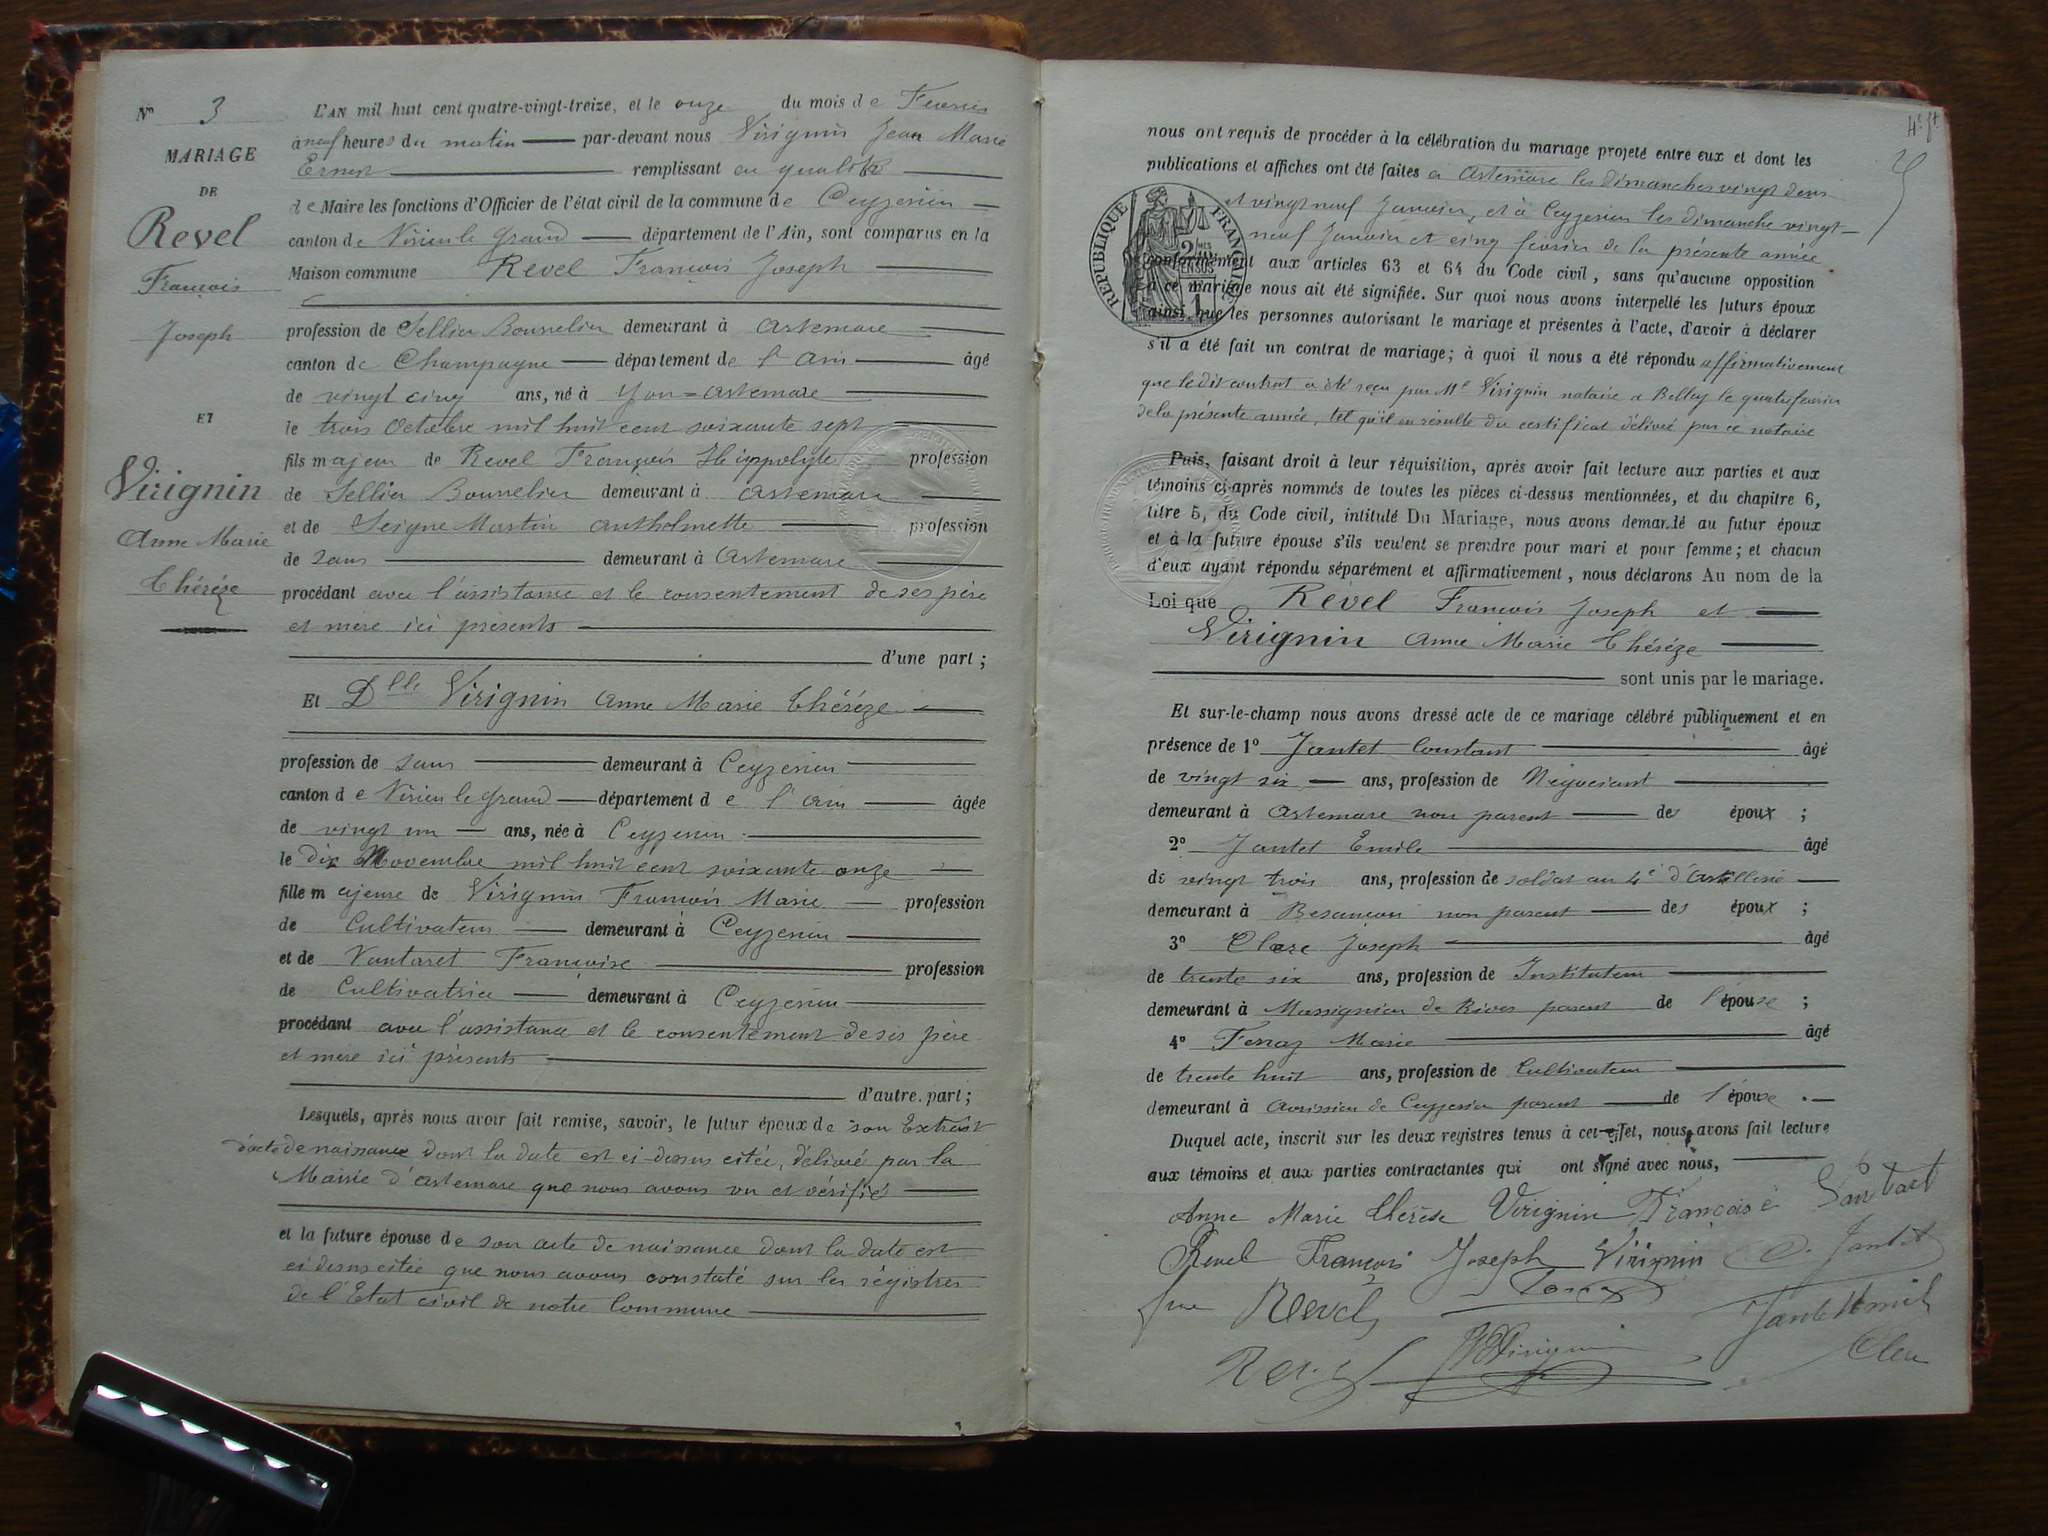 No 3
MARIAGE
DE
Revel
François
Joseph
ET
Virignin
Anne Marie
Théréze
L'AN mil huit cent quatre-vingt-treize, et le onze du mois de Fevrier
à neuf heures du matin par-devant nous Virignin Jean Marie
Ernest remplissant en qualité
de Maire les fonctions d'Officier de l'état civil de la commune de Ceyzerieu
canton de Virieu le Grand département de l'Ain, sont comparus en la
Maison commune Revel François Joseph
profession de Sellier Bourrelier demeurant à Artemare
canton de Champagne département de l'Ain âgé
de vingt cinq ans, né à Yon=Artemare
le trois Octobre mil huit cent soixante sept
fils majeur de Revel François Hippolyte profession
de Sellier Bourrelier demeurant à Artemare
et de Seigne Martin Antholmette profession
de sans demeurant à Artemare
procédant avec l'assistance et le consentement de ses père
et mère ici présents
d'une part ;
Et Dlle Virignin Anne Marie Théréze
profession de sans demeurant à Ceyzerieu
canton de Virieu le Grand département de l'Ain âgée
de vingt un ans, née à Ceyzerieu
le dix Novembre mil huit cent soixante onze
fille majeure de Virignin François Marie profession
de Cultivateur demeurant à Ceyzerieu
et de Vantaret Françoise profession
de Cultivatrice demeurant à Ceyzerieu
procédant avec l'assistance et le consentement de ses père
et mère ici présents
d'autre part ;
Lesquels, après nous avoir fait remise, savoir, le futur époux de son Extrait
d'acte de naissance dont la date est ci-dessus citée, délivré par la
Mairie d'Artemare que nous avons vu et vérifié
et la future épouse de son acte de naissance dont la date est
ci dessus citée que nous avons constaté sur les régistres
de l'Etat civil de notre Commune
4e ft
nous ont requis de procéder à la célébration du mariage projeté entre eux et dont les
publications et affiches ont été faites à Artemare les dimanches vingt deux
et vingt neuf Janvier, et à Ceyzerieu les dimanche vingt-
neuf Janvier et cinq fevrier de la présente année
REPUBLIQUE FRANÇAISE
conformément aux articles 63 et 64 du Code civil, sans qu'aucune opposition
à ce mariage nous ait été signifiée. Sur quoi nous avons interpellé les futurs époux
ainsi que les personnes autorisant le mariage et présentes à l'acte, d'avoir à déclarer
s'il a été fait un contrat de mariage ; à quoi il nous a été répondu affirmativement
que le dit contrat a été reçu par Me Virignin notaire à Belley le quatre fevrier
de la présente année, tel qu'il en résulte du certificat délivré par ce notaire
Puis, faisant droit à leur réquisition, après avoir fait lecture aux parties et aux
témoins ci-après nommés de toutes les pièces ci-dessus mentionnées, et du chapitre 6,
titre 5, du Code civil, intitulé Du Mariage, nous avons demandé au futur époux
et à la future épouse s'ils veulent se prendre pour mari et pour femme ; et chacun
d'eux ayant répondu séparément et affirmativement, nous déclarons Au nom de la
Loi que Revel François Joseph et
Virignin Anne Marie Théréze
sont unis par le mariage.
Et sur-le-champ nous avons dressé acte de ce mariage célébré publiquement et en
présence de 1° Jantet Constant âgé
de vingt six ans, profession de Négociant
demeurant à Artemare non parent des époux ;
2° Jantet Émile âgé
de vingt trois ans, profession de soldat au 4e d'Artillerie
demeurant à Besançon non parent des époux ;
3° Clerc Joseph âgé
de trente six ans, profession de Instituteur
demeurant à Massignieu de Rives parent de l'épouse ;
4° Ferraz Marie âgé
de trente huit ans, profession de Cultivateur
demeurant à Avrissieu de Ceyzerieu parent de l'épouse .
Duquel acte, inscrit sur les deux registres tenus à cet effet, nous avons fait lecture
aux témoins et aux parties contractantes qui ont signé avec nous,
Anne Marie Thérèse Virignin Françoise Vantaret
Revel François Joseph Virignin C. Jantet
Revel Ferraz Jantet Emile
Revel Virignin Clerc